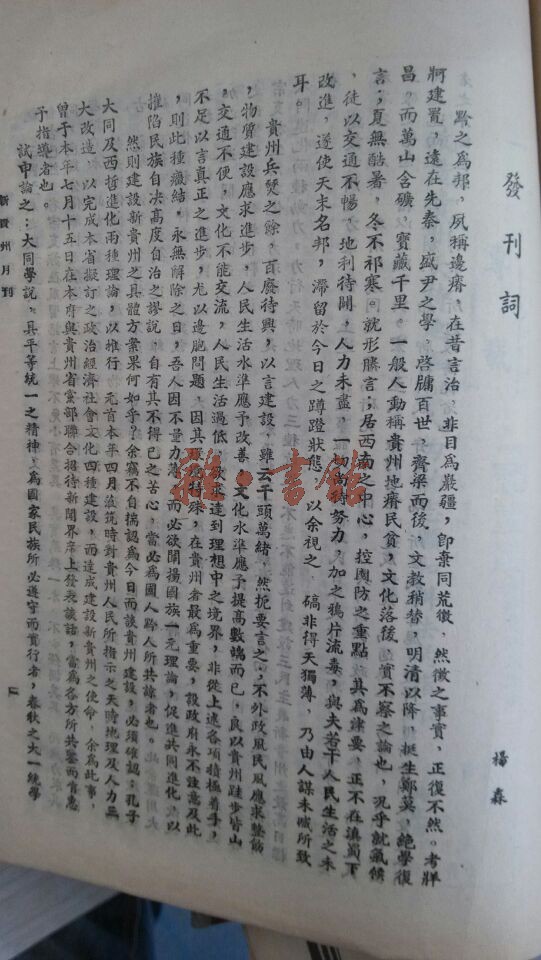 發刊詞
楊森
黔之爲邦，夙稱邊瘠，在昔言治，非目爲巖疆，卽棄同荒徼，然徵之事實，正復不然。考牂
牁建置，遠在先秦，盛尹之學，啓牖百世，齊梁而後，文教稍替，明清以降，挺生鄭莫，絶學復
昌。而萬山含礦，寶藏千里。一般人動稱貴州地瘠民貧，文化落後，實不察之論也，况乎就氣候
言；夏無酷暑，冬不祁寒。就形勝言；居西南之中心，控輿防之重點，其爲津要，正不在滇蜀下
，徒以交通不暢，地利待開，人力未盡，一切尚待努力，加之鴉片流毒，與夫若干人民生活之未
改進，遂使天末名邦，滯留於今日之蹲蹬狀態，以余視之，碻非得天獨薄，乃由人謀未臧所致
耳。
貴州兵燹之餘，百廢待興，以言建設，雖云千頭萬緒，然扼要言之，不外政風民風應求整飭
，物質建設應求進步，人民生活水準應予改善，文化水準應予提高數端而已，良以貴州跬步皆山
，交通不便，文化不能交流，人民生活過低，欲求達到理想中之境界，非從上述各項積極着手，
不足以言真正之進步，尤以邊胞問題，因其環境特殊，在貴州者最爲重要，設政府永不注意及此
，則此種癥結，永無解除之日，吾人因不量力薄，而必欲闡揚國族一元理論，促進共同進化，以
摧陷民族自决高度自治之謬説，自有其不得已之苦心，當必爲國人黔人所共諒者也。
然則建設新貴州之具體方案果何如乎？余竊不自揣認爲今日而談貴州建設，必須確認：孔子
大同及西哲進化兩種理論，以推行　元首本年四月蒞筑時對貴州人民所指示之天時地理及人力三
大改造，以完成本省擬訂之政治經濟社會文化四種建設，而達成建設新貴州之使命，余爲此事，
曾于本年七月十五日在本府與貴州省黨部聯合招待新聞界席上發表談話，當爲各方所共鑒而肯惠
予指導者也。
試申論之：大同學説，具平等統一之精神，爲國家民族所必遵守而實行者，春秋之大一統學
新貴州月刊
一